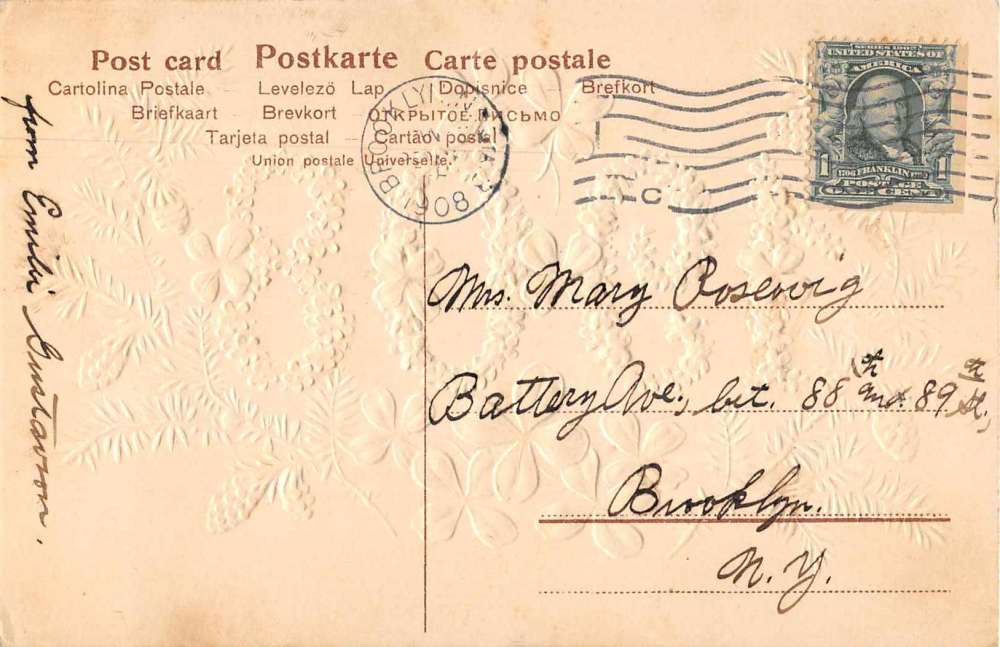 Post card Postkarte Carte postale
Cartolina Postale Levelező Lap Dopisnice Brefkort
Briefkaart Brevkort ОТКРЫТОЕ ПИСЬМО
Tarjeta postal Cartão postal
Union postale Universelle.
BROOKLYN
1908
C
SERIES 1902
UNITED STATES OF
AMERICA
1 1
1706 FRANKLIN 1790
POSTAGE
ONE CENT
from Emilie Gustavson.
Mrs. Mary Rosevvig
Battery Ave., bet. 88th and. 89th St.,
Brooklyn.
N. Y.